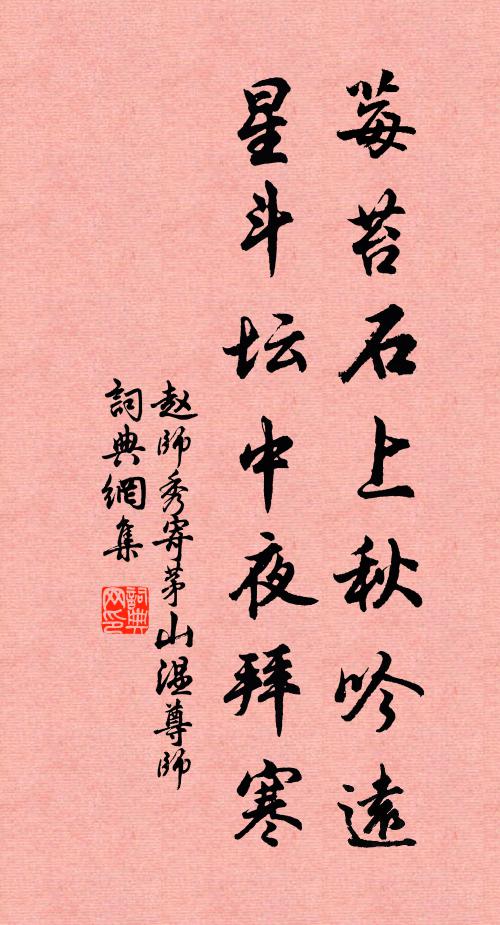 莓苔石上秋吟遠
星斗坛中夜拜寒
赵師秀寄茅山温尊師
詞典網集
詞典网印